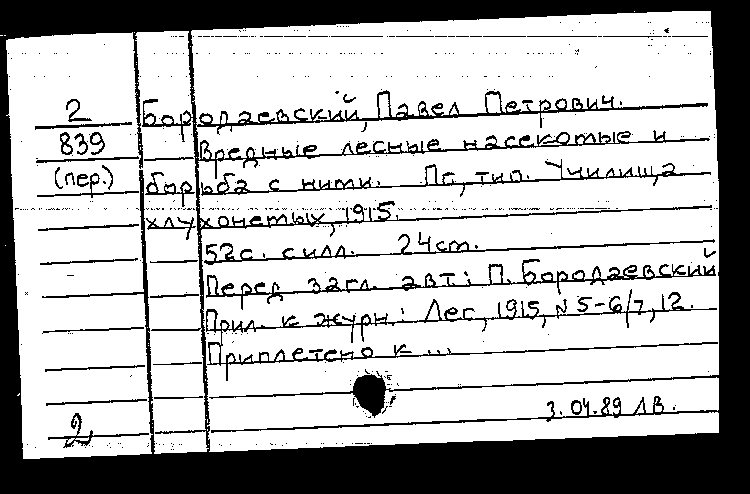 2 Бородаевский, Павел Петрович.
839 Вредные лесные насекомые и
(пер.) борьба с ними. Пг, тип. Училища
хлухонемых, 1915.
52с. с илл. 24 см.
Перед загл. авт.: П. Бородаевский
Прил. к журн.: Лес, 1915, N 5-6/7, 12.
Приплетено к ...
3.04.89 ЛВ.
2